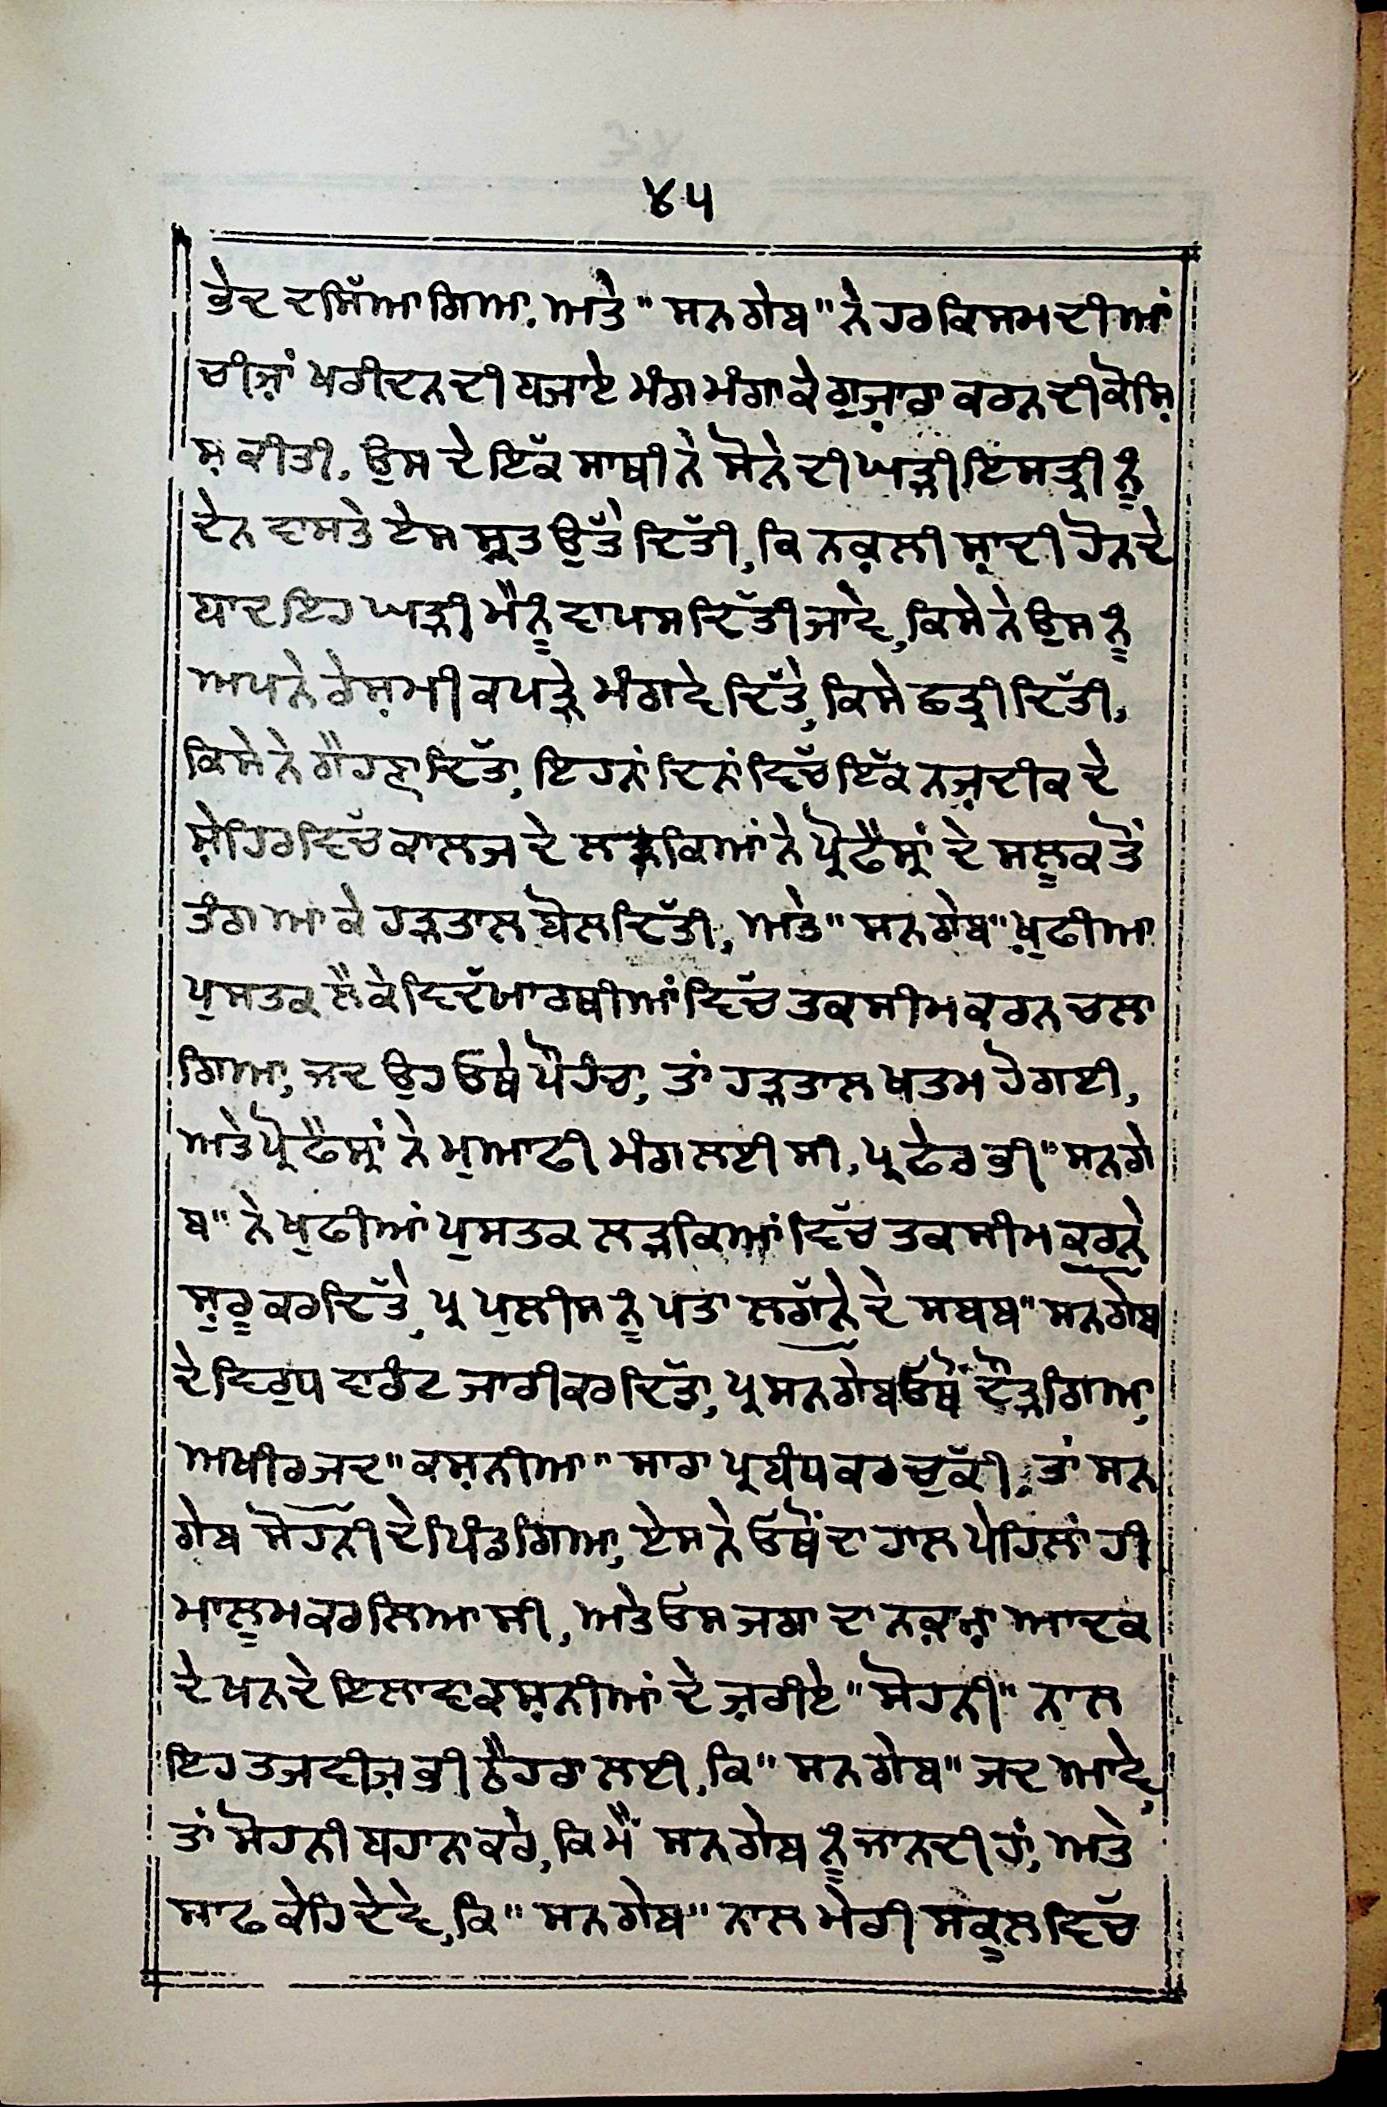 ੪੫
ਭੇਦ ਦਸਿੱਆ ਗਿਆ. ਅਤੇ "ਸਨਗੇਬ" ਨੇ ਹਰ ਕਿਸਮ ਦੀਆਂ
ਚੀਜ਼ਾਂ ਖਰੀਦਨ ਦੀ ਬਜਾਏ ਮੰਗ ਮੰਗਾ ਕੇ ਗੁਜ਼ਾਰਾ ਕਰਨ ਦੀ ਕੋਸ਼ਿ
ਸ਼ ਕੀਤੀ, ਉਸ ਦੇ ਇੱਕ ਸਾਥੀ ਨੇ ਸੋਨੇ ਦੀ ਘੜੀ ਇਸਤ੍ਰੀ ਨੂੰ
ਦੇਨ ਵਾਸਤੇ ਏਸ ਸ਼੍ਰਤ ਉੱਤੇ ਦਿੱਤੀ, ਕਿ ਨਕਲੀ ਸ਼ਾਦੀ ਹੋਨ ਦੇ
ਬਾਦ ਇਹ ਘੜੀ ਮੈਨੂੰ ਵਾਪਸ ਦਿੱਤੀ ਜਾਵੇ, ਕਿਸੇ ਨੇ ਉਸ ਨੂੰ
ਅਪਨੇ ਰੇਸ਼ਮੀ ਕਪੜੇ ਮੰਗਵੇ ਦਿੱਤੇ, ਕਿਸੇ ਛਤ੍ਰੀ ਦਿੱਤੀ,
ਕਿਸੇ ਨੇ ਗੈਹਣਾ ਦਿੱਤਾ, ਇਹਨਾਂ ਦਿਨਾਂ ਵਿੱਚ ਇੱਕ ਨਜ਼ਦੀਕ ਦੇ
ਸ਼ੇਹਿਰ ਵਿੱਚ ਕਾਲਜ ਦੇ ਲੜਕਿਆਂ ਨੇ ਪ੍ਰੋਫੈਸ੍ਰਾਂ ਦੇ ਸਲੂਕ ਤੋਂ
ਤੰਗ ਆ ਕੇ ਹੜਤਾਲ ਬੋਲ ਦਿੱਤੀ, ਅਤੇ "ਸਨਗੇਬ" ਖੁਫੀਆ
ਪੁਸਤਕ ਲੈ ਕੇ ਵਿੱਦਯਾਰਥੀਆਂ ਵਿੱਚ ਤਕਸੀਮ ਕਰਨ ਚਲਾ
ਗਿਆ, ਜਦ ਉਹ ਓਥੇ ਪੌਹੰਚਾ, ਤਾਂ ਹੜਤਾਲ ਖਤਮ ਹੋ ਗਈ,
ਅਤੇ ਪ੍ਰੋਫੈਸ੍ਰਾਂ ਨੇ ਮੁਆਫੀ ਮੰਗ ਲਈ ਸੀ, ਪ੍ਰ ਫੇਰ ਭੀ "ਸਨਗੇ
ਬ" ਨੇ ਖੁਫੀਆਂ ਪੁਸਤਕ ਲੜਕਿਆਂ ਵਿੱਚ ਤਕਸੀਮ ਕਰਨੇ
ਸ਼ੁਰੂ ਕਰ ਦਿੱਤੇ, ਪ੍ਰ ਪੁਲੀਸ ਨੂੰ ਪਤਾ ਲਗੱਨੇ ਦੇ ਸਬਬ "ਸਨਗੇਬ
ਦੇ ਵਿਰੁਧ ਵਾਰੰਟ ਜਾਰੀ ਕਰ ਦਿੱਤਾ, ਪ੍ਰ ਸਨਗੇਬ ਓਥੋਂ ਦੌੜ ਗਿਆ,
ਅਖੀਰ ਜਦ "ਕਸ਼ਨੀਆ" ਸਾਰਾ ਪ੍ਰਬੰਧ ਕਰ ਚੁੱਕੀ, ਤਾਂ ਸਨ
ਗੇਬ ਸੋਹਨੀ ਦੇ ਪਿੰਡ ਗਿਆ, ਏਸ ਨੇ ਓਥੋਂ ਦਾ ਹਾਲ ਪੇਹਿਲਾਂ ਹੀ
ਮਾਲੂਮ ਕਰ ਲਿਆ ਸੀ, ਅਤੇ ਓਸ ਜਗਾ ਦਾ ਨਕਸ਼ਾ ਆਦਕ
ਦੇਖਨ ਦੇ ਇਲਾਵਾ ਕਸ਼ਨੀਆਂ ਦੇ ਜ਼ਰੀਏ "ਸੋਹਨੀ" ਨਾਲ
ਇਹ ਤਜਵੀਜ਼ ਭੀ ਠੈਹਰਾ ਲਈ, ਕਿ "ਸਨਗੇਬ" ਜਦ ਆਵੇ,
ਤਾਂ ਸੋਹਨੀ ਬਹਾਨਾ ਕਰੇ, ਕਿ ਮੈਂ ਸਨਗੇਬ ਨੂੰ ਜਾਨਦੀ ਹਾਂ, ਅਤੇ
ਸਾਫ ਕੇਹਿ ਦੇਵੇ, ਕਿ "ਸਨਗੇਬ" ਨਾਲ ਮੇਰੀ ਸਕੂਲ ਵਿੱਚ